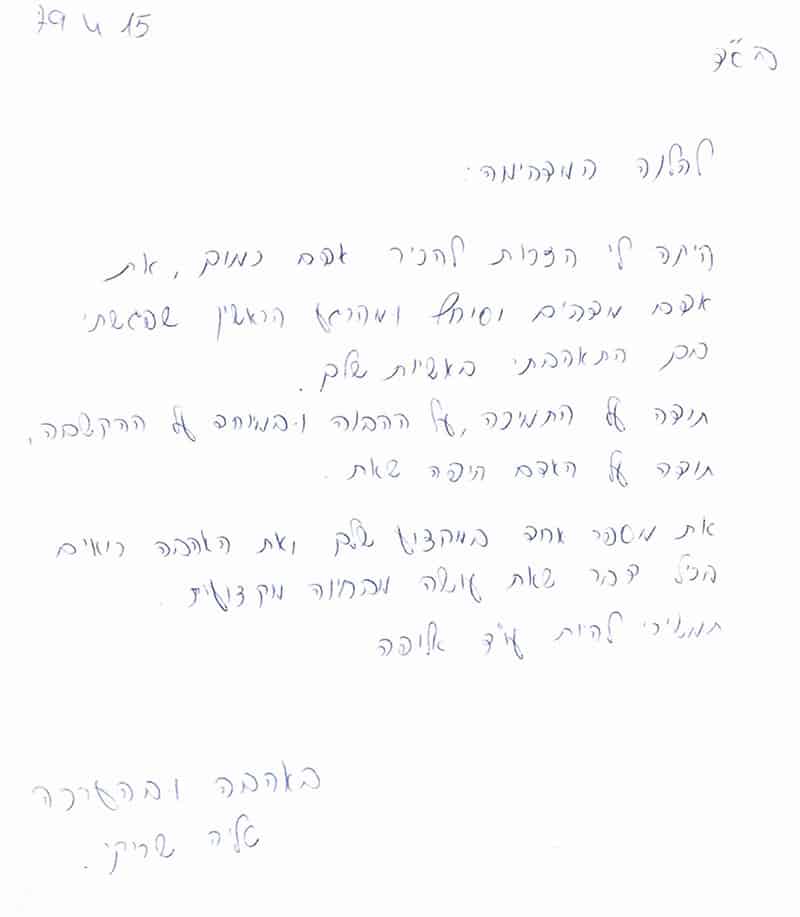 בס"ד
להלנה המדהימה:
היתה לי הזכות להכיר אדם כמוך, את
אדם מדהים ומיוחד ומהרגע הראשון שפגשתי
בך התאהבתי באישיות שלך.
תודה על התמיכה, על ההבנה ובמיוחד על ההקשבה,
תודה על האדם היפה שאת.
את מספר אחד במקצוע שלך ואת האהבה רואים
בכל דבר שאת עושה מבחינה מקצועית.
תמשיכי להיות עו"ד אלופה
באהבה ובהערכה
טליה שריקי.